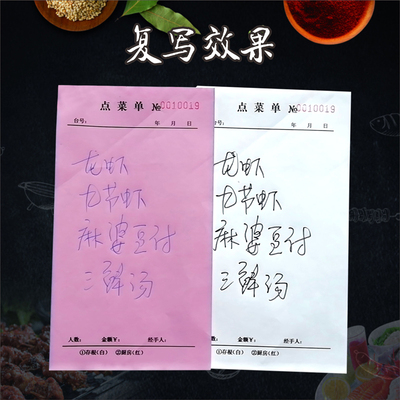 复写效果
点菜单 №0010019
台号： 年 月 日
龙虾
九节虾
麻婆豆付
三鲜汤
人数： 金额￥： 经手人：
①存根(白) ②厨房(红)
点菜单 №0010019
台号： 年 月 日
龙虾
九节虾
麻婆豆付
三鲜汤
人数： 金额￥： 经手人：
①存根(白) ②厨房(红)